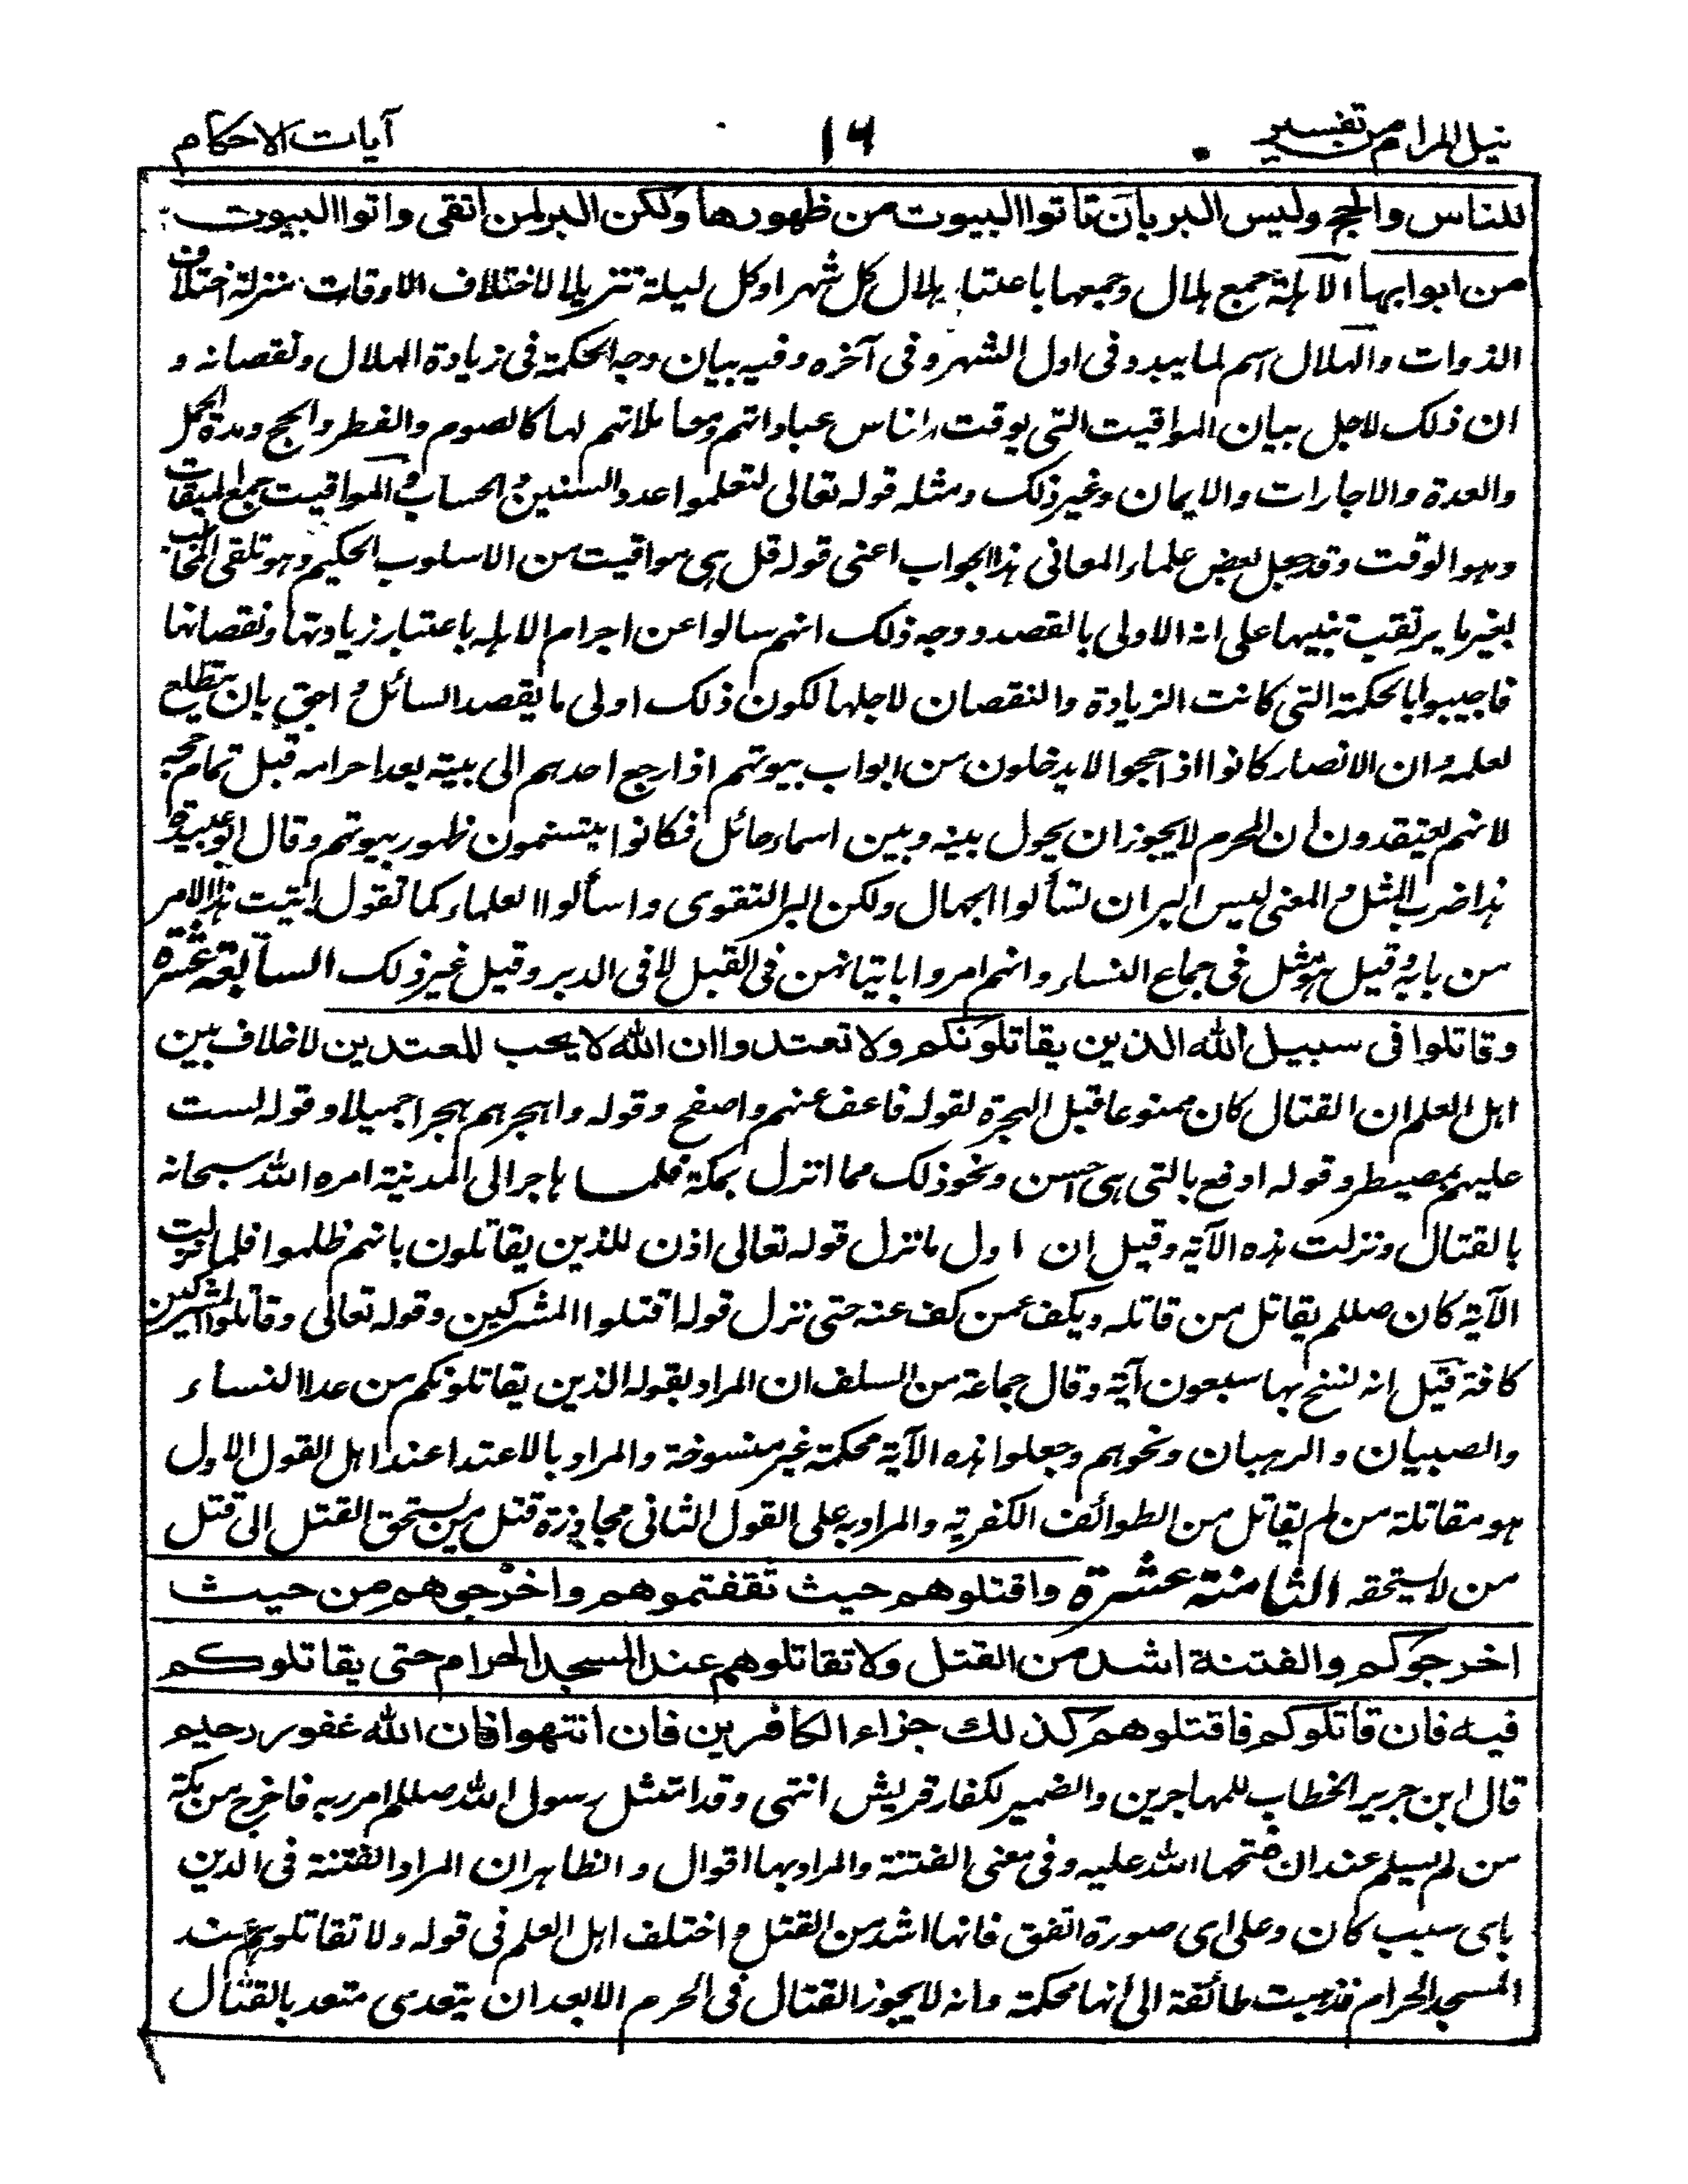 نيل المرام من تفسير
١٦
آيات الاحكام
للناس والحج وليس البر بان تاتوا البيوت من ظهورها ولكن البر لمن اتقى واتوا البيوت
من ابوابها الاهلة جمع هلال وجمعها باعتبار هلال كل شهر او كل ليلة تنزيلا لاختلاف الاوقات منزلة اختلاف
الذوات والهلال اسم لما يبدو فى اول الشهر و فى آخره وفيه بيان وجه الحكمة فى زيادة الهلال ونقصانه و
ان ذلك لاجل بيان المواقيت التى يوقت الناس عباداتهم ومعاملاتهم بها كالصوم والفطر والحج ومدة الحمل
والعدة والاجارات والايمان وغير ذلك ومثله قوله تعالى لتعلموا عدد السنين والحساب والمواقيت جمع الميقات
وهو الوقت وقد جعل بعض علماء المعانى هذا الجواب اعنى قوله قل هى مواقيت من الاسلوب الحكيم وهو تلقى المخاطب
بغير ما يرتقب تنبيها على انه الاولى بالقصد ووجه ذلك انهم سالوا عن اجرام الاهله باعتبار زيادتها ونقصانها
فاجيبوا بالحكمة التى كانت الزيادة والنقصان لاجلها لكون ذلك اولى ما يقصد السائل و احق بان يتطلع
لعلمه وان الانصار كانوا اذا حجوا لا يدخلون من ابواب بيوتهم اذا رجع احدهم الى بيته بعد احرامه قبل تمام حجه
لانهم يعتقدون ان المحرم لا يجوز ان يحول بينه وبين السماء حائل فكانوا يتسنمون ظهور بيوتهم وقال ابو عبيدة
هذا ضرب المثل و المعنى ليس البر ان تسألوا الجهال ولكن البر التقوى واسألوا العلماء كما تقول اتيت هذا الامر
من بابه وقيل هو مثل فى جماع النساء وانهم امروا باتيانهن فى القبل لا فى الدبر وقيل غير ذلك السابعة عشرة
وقاتلوا فى سبيل الله الذين يقاتلونكم ولا تعتدوا ان الله لا يحب المعتدين لا خلاف بين
اهل العلم ان القتال كان ممنوعا قبل الهجرة لقوله فاعف عنهم واصفح وقوله واهجرهم هجرا جميلا وقوله لست
عليهم بمصيطر وقوله ادفع بالتى هى احسن ونحو ذلك مما انزل بمكة فلما هاجر الى المدينة امره الله سبحانه
بالقتال ونزلت هذه الآية وقيل ان اول ما نزل قوله تعالى اذن للذين يقاتلون بانهم ظلموا فلما نزلت
الآية كان صللم يقاتل من قاتله ويكف عمن كف عنه حتى نزل قوله اقتلوا المشركين وقوله تعالى وقاتلوا المشركين
كافة قيل انه نسخ بها سبعون آية وقال جماعة من السلف ان المراد بقوله الذين يقاتلونكم من عدا النساء
والصبيان والرهبان ونحوهم وجعلوا هذه الآية محكمة غير منسوخة والمراد بالاعتدا عند اهل القول الاول
هو مقاتلة من لم يقاتل من الطوائف الكفرية والمراد به على القول الثانى مجاوزة قتل من يستحق القتل الى قتل
من لا يستحقه الثامنة عشرة واقتلوهم حيث ثقفتموهم واخرجوهم من حيث
اخرجوكم والفتنة اشد من القتل ولا تقاتلوهم عند المسجد الحرام حتى يقاتلوكم
فيه فان قاتلوكم فاقتلوهم كذلك جزاء الكافرين فان انتهوا فان الله غفور رحيم
قال ابن جرير الخطاب للمهاجرين والضمير لكفار قريش انتهى وقد امتثل رسول الله صللم امر ربه فاخرج من مكة
من لم يسلم عند ان فتحها الله عليه وفى معنى الفتنة والمراد بها اقوال و الظاهر ان المراد الفتنة فى الدين
باى سبب كان وعلى اى صورة اتفق فانها اشد من القتل و اختلف اهل العلم فى قوله ولا تقاتلوهم عند
المسجد الحرام فذهبت طائفة الى انها محكمة وانه لا يجوز القتال فى الحرم الا بعد ان يتعدى متعد بالقتال